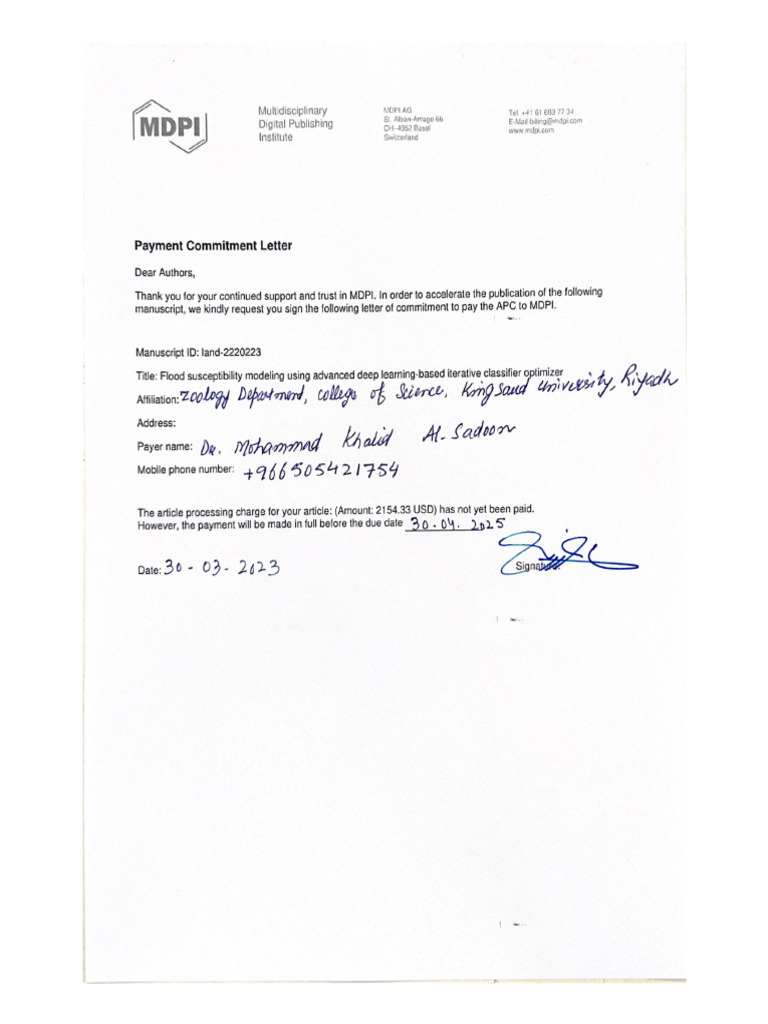 MDPI
Multidisciplinary
Digital Publishing
Institute
MDPI AG
St. Alban-Anlage 66
CH-4052 Basel
Switzerland
Tel. +41 61 683 77 34
E-Mail billing@mdpi.com
www.mdpi.com
Payment Commitment Letter
Dear Authors,
Thank you for your continued support and trust in MDPI. In order to accelerate the publication of the following
manuscript, we kindly request you sign the following letter of commitment to pay the APC to MDPI.
Manuscript ID: land-2220223
Title: Flood susceptibility modeling using advanced deep learning-based iterative classifier optimizer
Affiliation: Zoology Department, College of Science, King Saud University, Riyadh
Address:
Payer name: Dr. Mohammad Khalid Al-Sadoon
Mobile phone number: +966505421754
The article processing charge for your article: (Amount: 2154.33 USD) has not yet been paid.
However, the payment will be made in full before the due date 30.04.2025
Date: 30-03-2023
Signature: